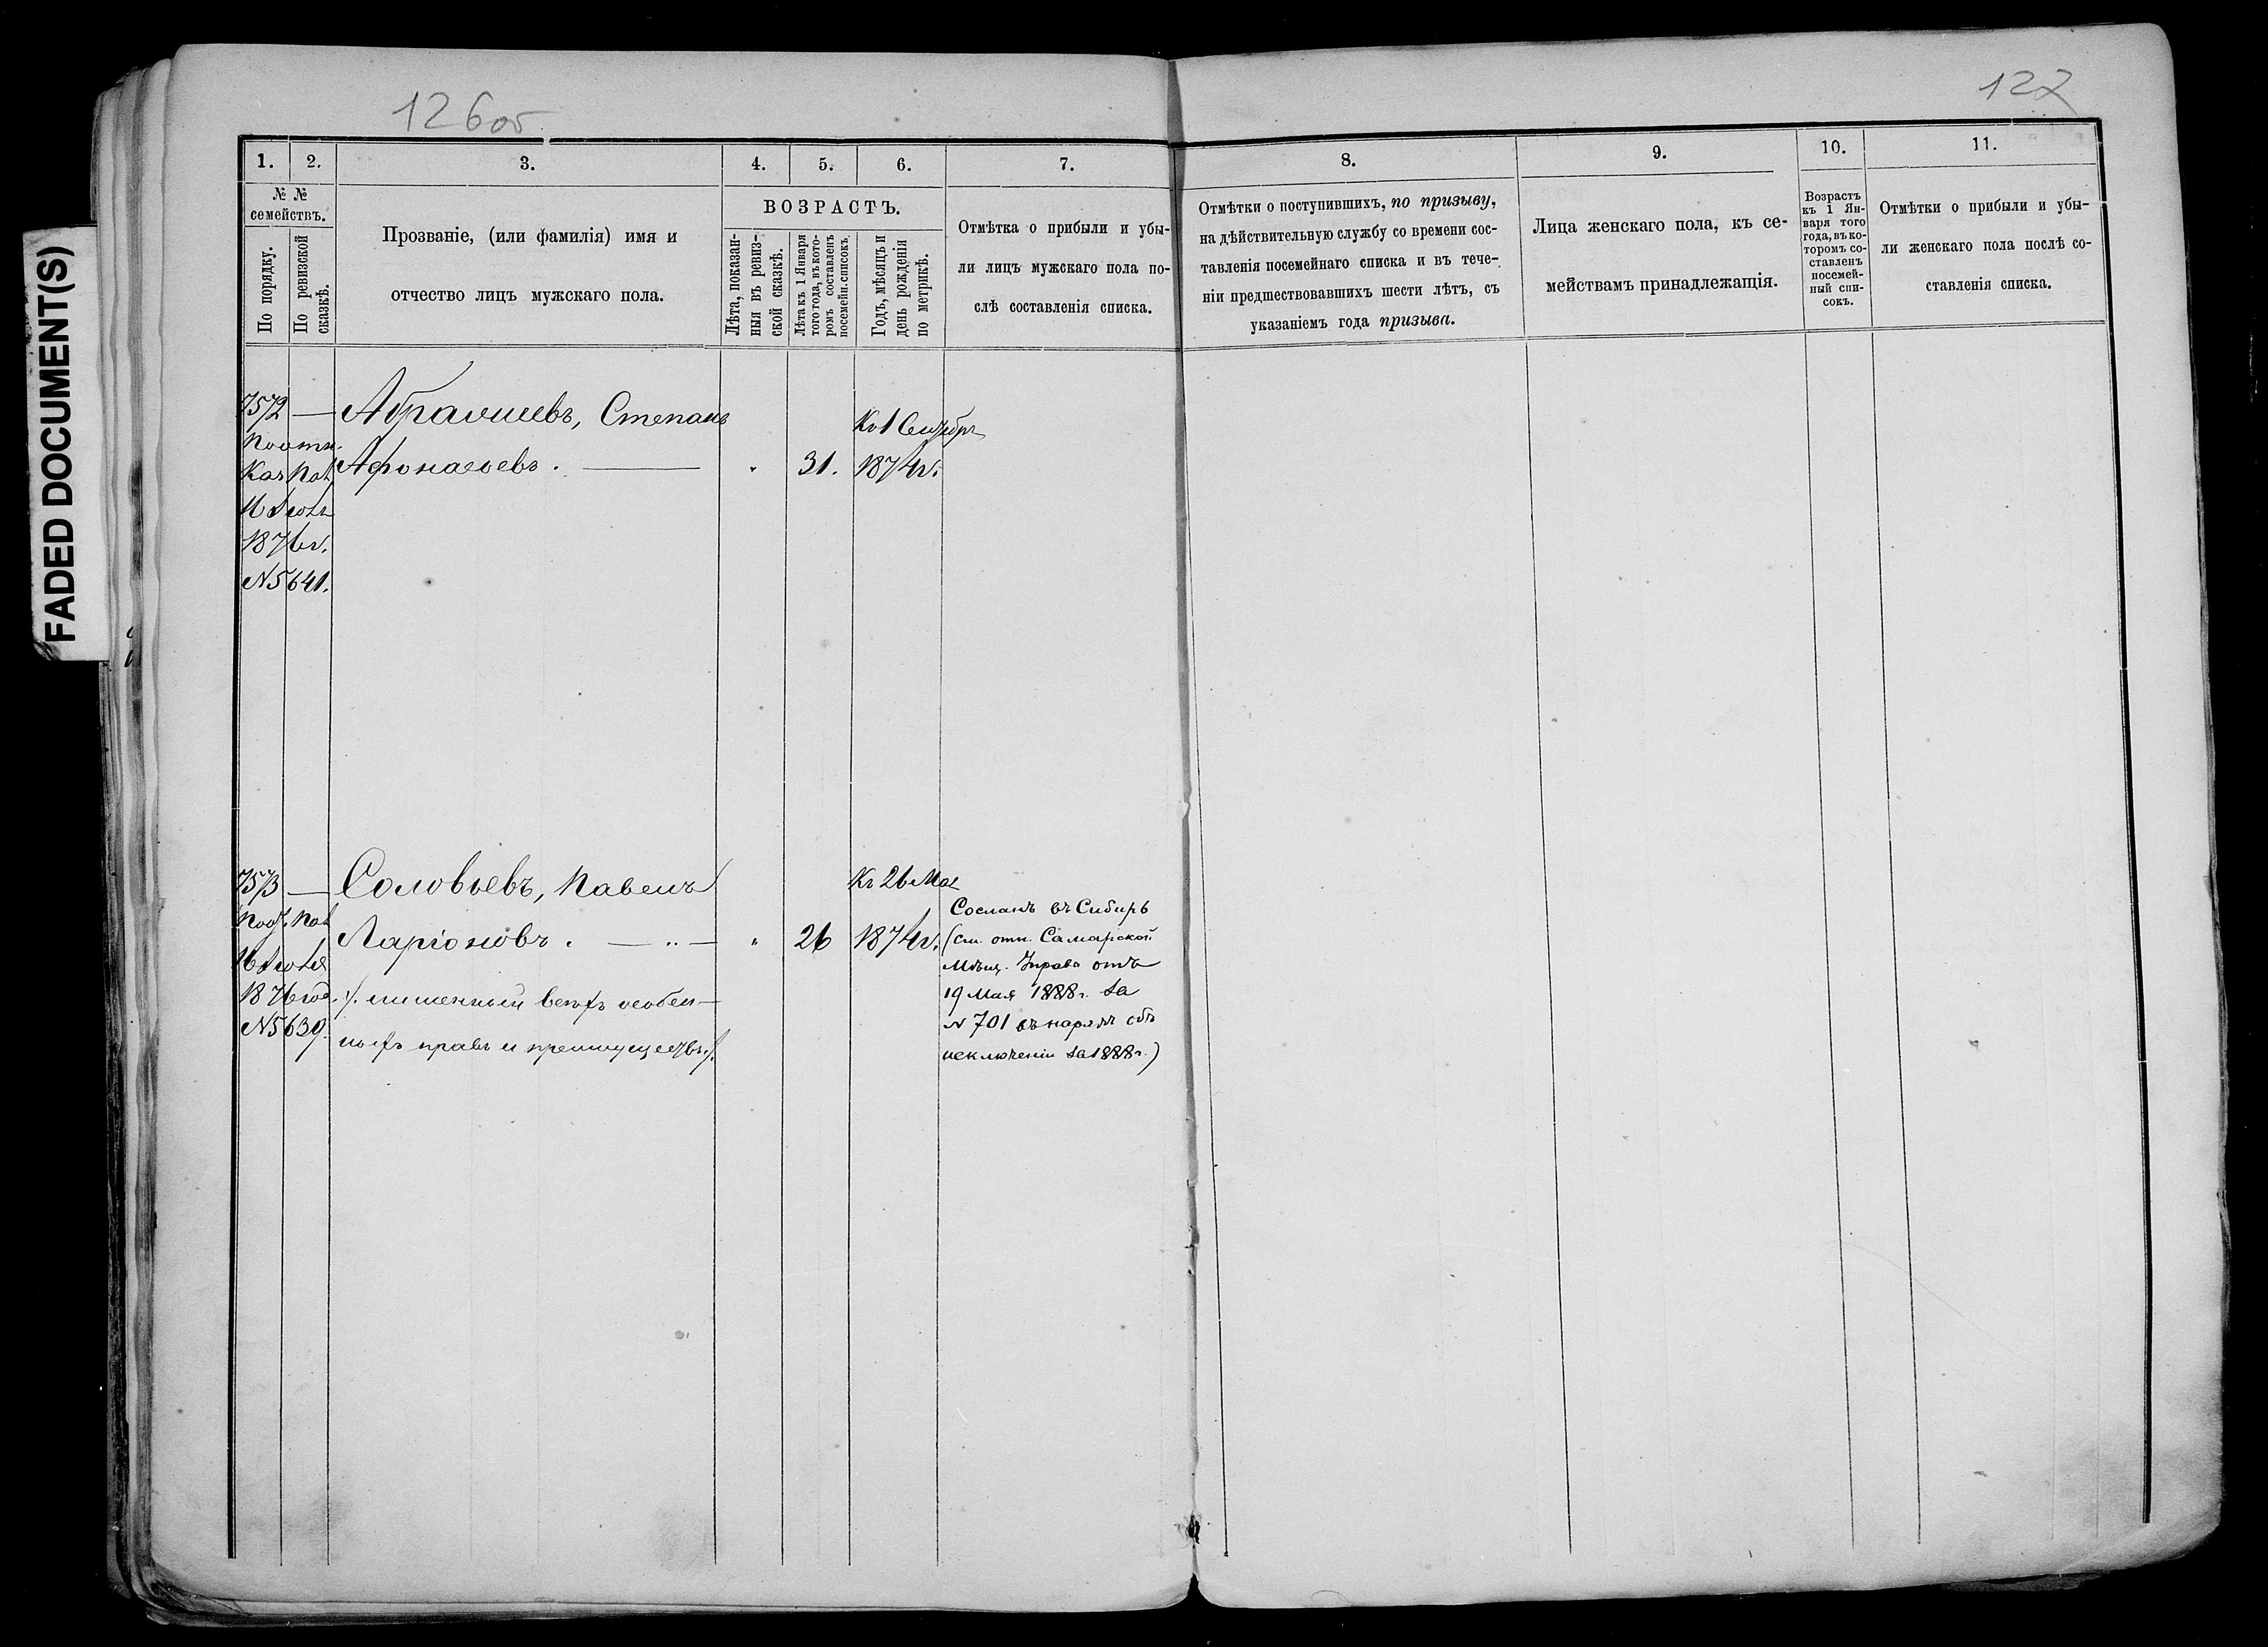 FADED DOCUMENT(S)
126об
122
1.
2.
3.
4.
5.
6.
7.
8.
9.
10.
11.
№ №
семействъ.
По порядку.
По ревизской
сказкѣ.
Прозваніе, (или фамилія) имя и
отчество лицъ мужскаго пола.
ВОЗРАСТЪ.
Лѣта, показан-
ныя въ ревиз-
ской сказкѣ.
Лѣта къ 1 Января
того года, въ кото-
ромъ составленъ
посемейн. списокъ.
Годъ, мѣсяцъ и
день рожденія
по метрикѣ.
Отмѣтка о прибыли и убы-
ли лицъ мужскаго пола по-
слѣ составленія списка.
Отмѣтки о поступившихъ, по призыву,
на дѣйствительную службу со времени сос-
тавленія посемейнаго списка и въ тече-
ніи предшествовавшихъ шести лѣтъ, съ
указаніемъ года призыва.
Лица женскаго пола, къ се-
мействамъ принадлежащія.
Возрастъ
къ 1 Ян-
варя того
года, въ ко-
торомъ со-
ставленъ
посемей-
ный спи-
сокъ.
Отмѣтки о прибыли и убы-
ли женскаго пола послѣ со-
ставленія списка.
7572 — Абрамшевъ, Степанъ
Къ 1 Сентября
Аѳонасьевъ. — " 31. 1874г.
1876г.
N5641.
7573 — Соловьевъ, Павелъ
Къ 26 Мая
Ларіоновъ. — " — " 26 1874г.
1876год.
N5639.
/. лишенный всѣхъ особен-
ныхъ правъ и преимуществъ./.
Сосланъ въ Сибирь
(см. отн. Самарской
Мѣщ. Управы отъ
19 Мая 1888г. за
N 701 въ нарядѣ объ
исключеніи за 1888г.)